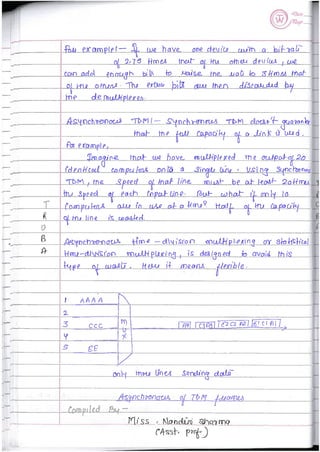 For example:- If we have one device with a bit-rate
of 2.75 times that of the other devices, we
can add enough bits to raise the rate to 3 times that
of the others. The extra bits are then discarded by
the demultiplexer.
Asynchronous TDM:- Synchronous TDM doesn't guarantee
that the full capacity of a link is used.
For example,
Imagine that we have multiplexed the output of 20
identical computers onto a single line. Using Synchronous
TDM, the speed of that line must be at least 20 times
the speed of each input line. But what if only 10
computers are in use at a time? Half of the capacity
of the line is wasted.
Asynchronous time-division multiplexing or statistical
time-division multiplexing, is designed to avoid this
type of waste. Here it means flexible.
1 AAAA
2
3 CCC
4
5 EE
MUX
only three lines sending data
Asynchronous of TDM frames
Compiled By -
Miss. Nandini Sharma
(Asst. Prof.)